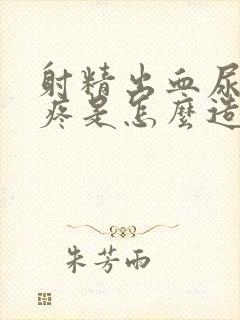 射精出血尿
疼是怎麼造
朱芳雨